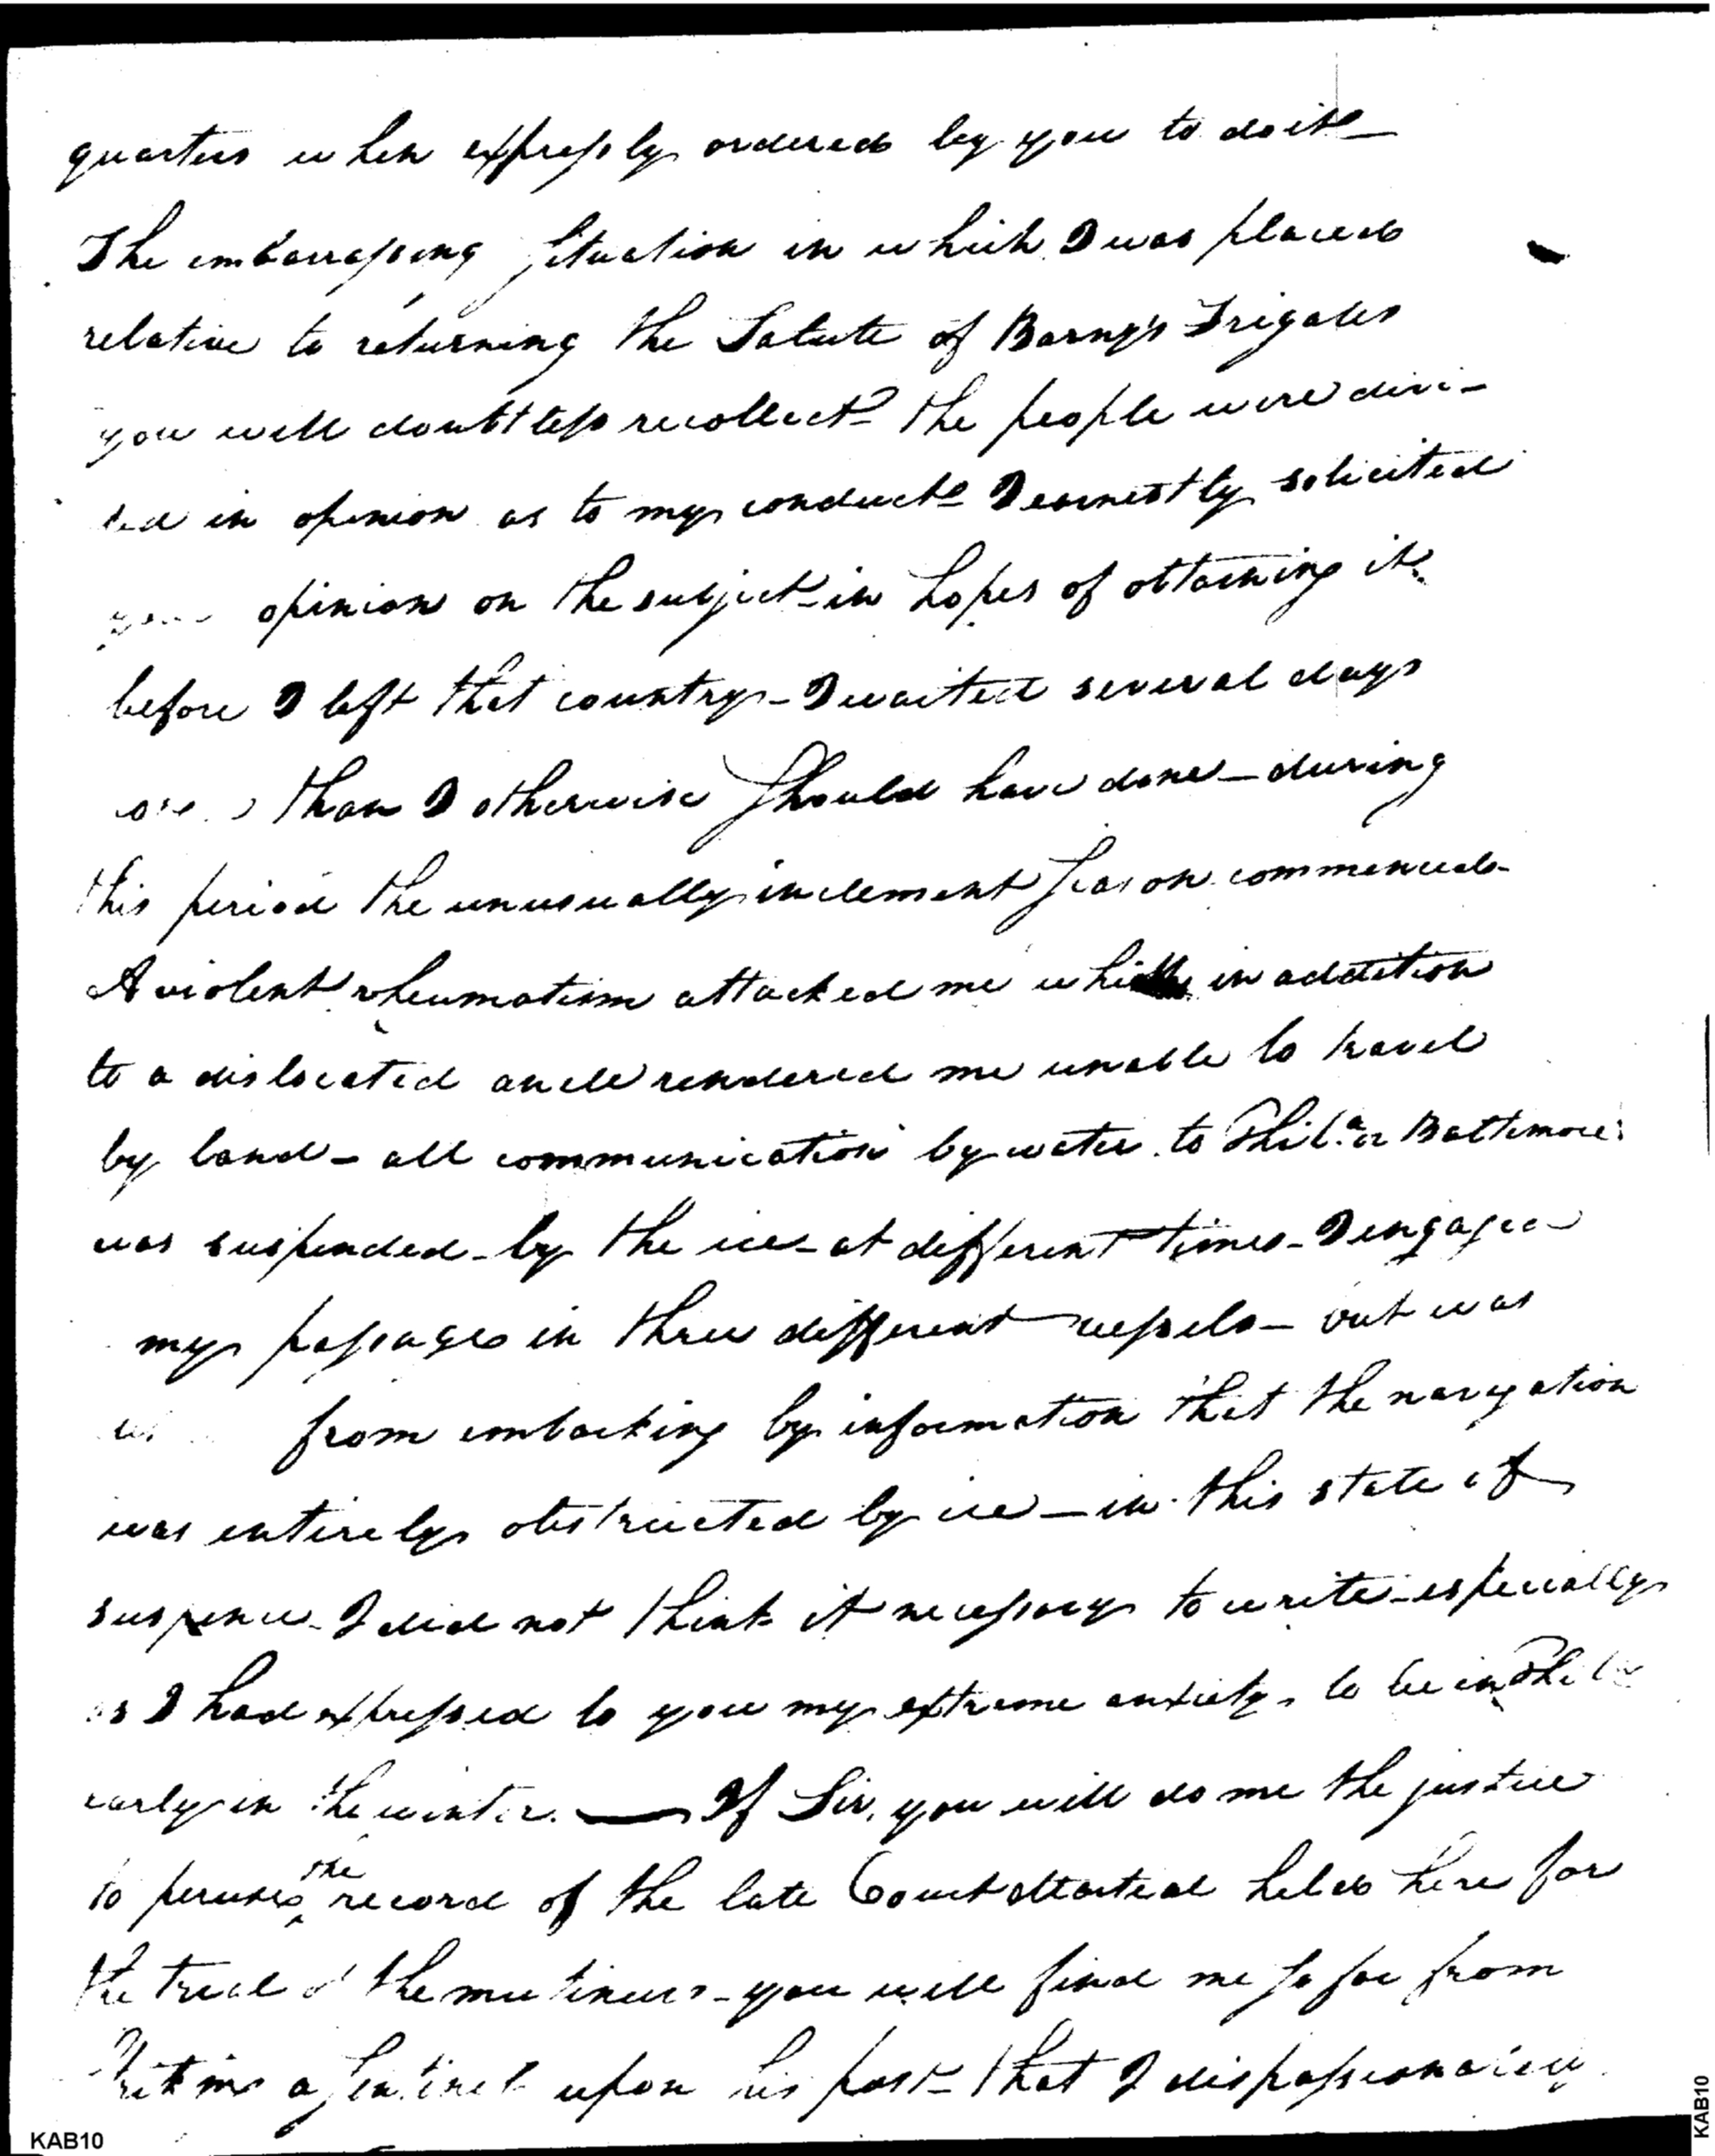 quarters when expressly ordered by you to do it—
The embarrassing situation in which I was placed
relative to returning the Salute of Barny's Frigates
you will doubtless recollect— the people were divi-
ded in opinion as to my conduct— I earnestly solicited
your opinion on the subject—in hopes of obtaining it
before I left that country—I waited several days
than I otherwise should have done—during
this period the unusually inclement season commenced—
A violent rheumatism attacked me which in addition
to a dislocated ancle rendered me unable to travel
by land—all communication by water to Phila. or Baltimore
was suspended—by the ice—at different times—I engaged
my passage in three different vessels— but was
from embarking by information that the navigation
was entirely obstructed by ice—in this state of
suspence—I did not think it necessary to write—especially
as I had expressed to you my extreme anxiety to be in Phila
early in the winter.— If Sir, you will do me the justice
to peruse the record of the late Court Martial held here for
the trial of the mutineers—you will find me so far from
a sentinel upon his post—that I dispassionately
KAB10
KAB10